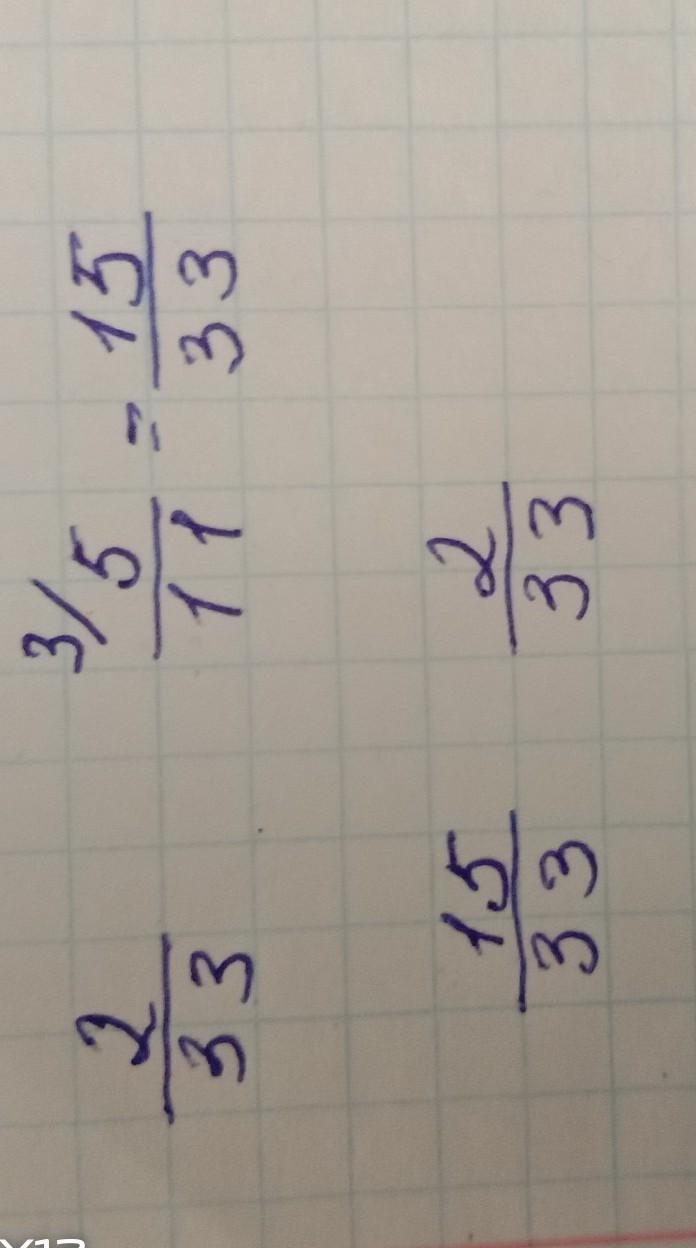 2/33 3/ 5/11 = 15/33
15/33 2/33